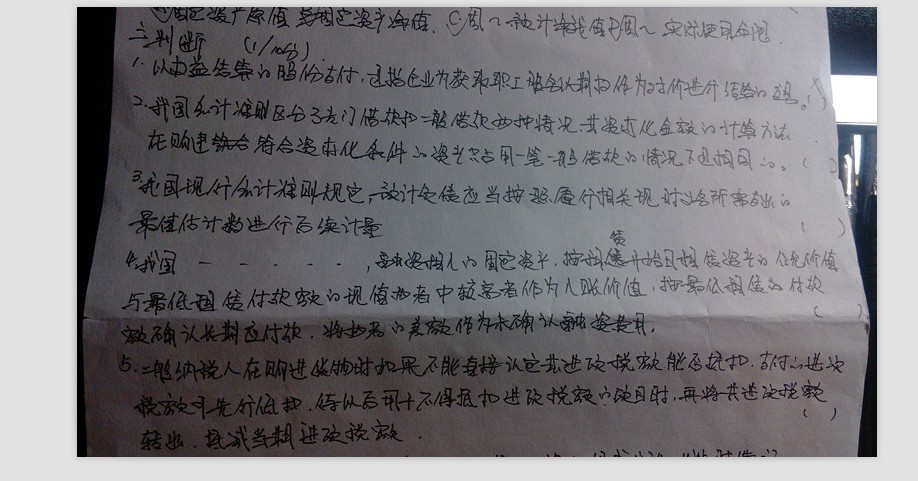 固定资产原值 与固定资产净值. C.固 一般计净残值 固 实际使用年限
三.判断 (1'/10分)
1.以权益结算的股份支付,是指企业为获取职工服务以期权作为对价进行结算的交易。( )
2.我国会计准则区分了专门借款和一般借款两种情况,其资本化金额的计算方法
在购建符合资本化条件的资产只占用一笔一般借款的情况下是相同的。( )
3.我国现行会计准则规定,预计负债应当按照履行相关现时义务所需支出的
最佳估计数进行后续计量 ( )
4.我国 - - - - - -,融资租入的固定资产,按租赁开始日租赁资产的公允价值
与最低租赁付款额的现值两者中较高者作为入账价值,按最低租赁付款
额确认长期应付款,将两者的差额作为未确认融资费用. ( )
5.一般纳税人在购进货物时如果不能直接认定其进项税额能否抵扣,支付的进项
税额可先行抵扣,待以后用于不得抵扣进项税额的项目时,再将其进项税额
转出,抵减当期进项税额. ( )